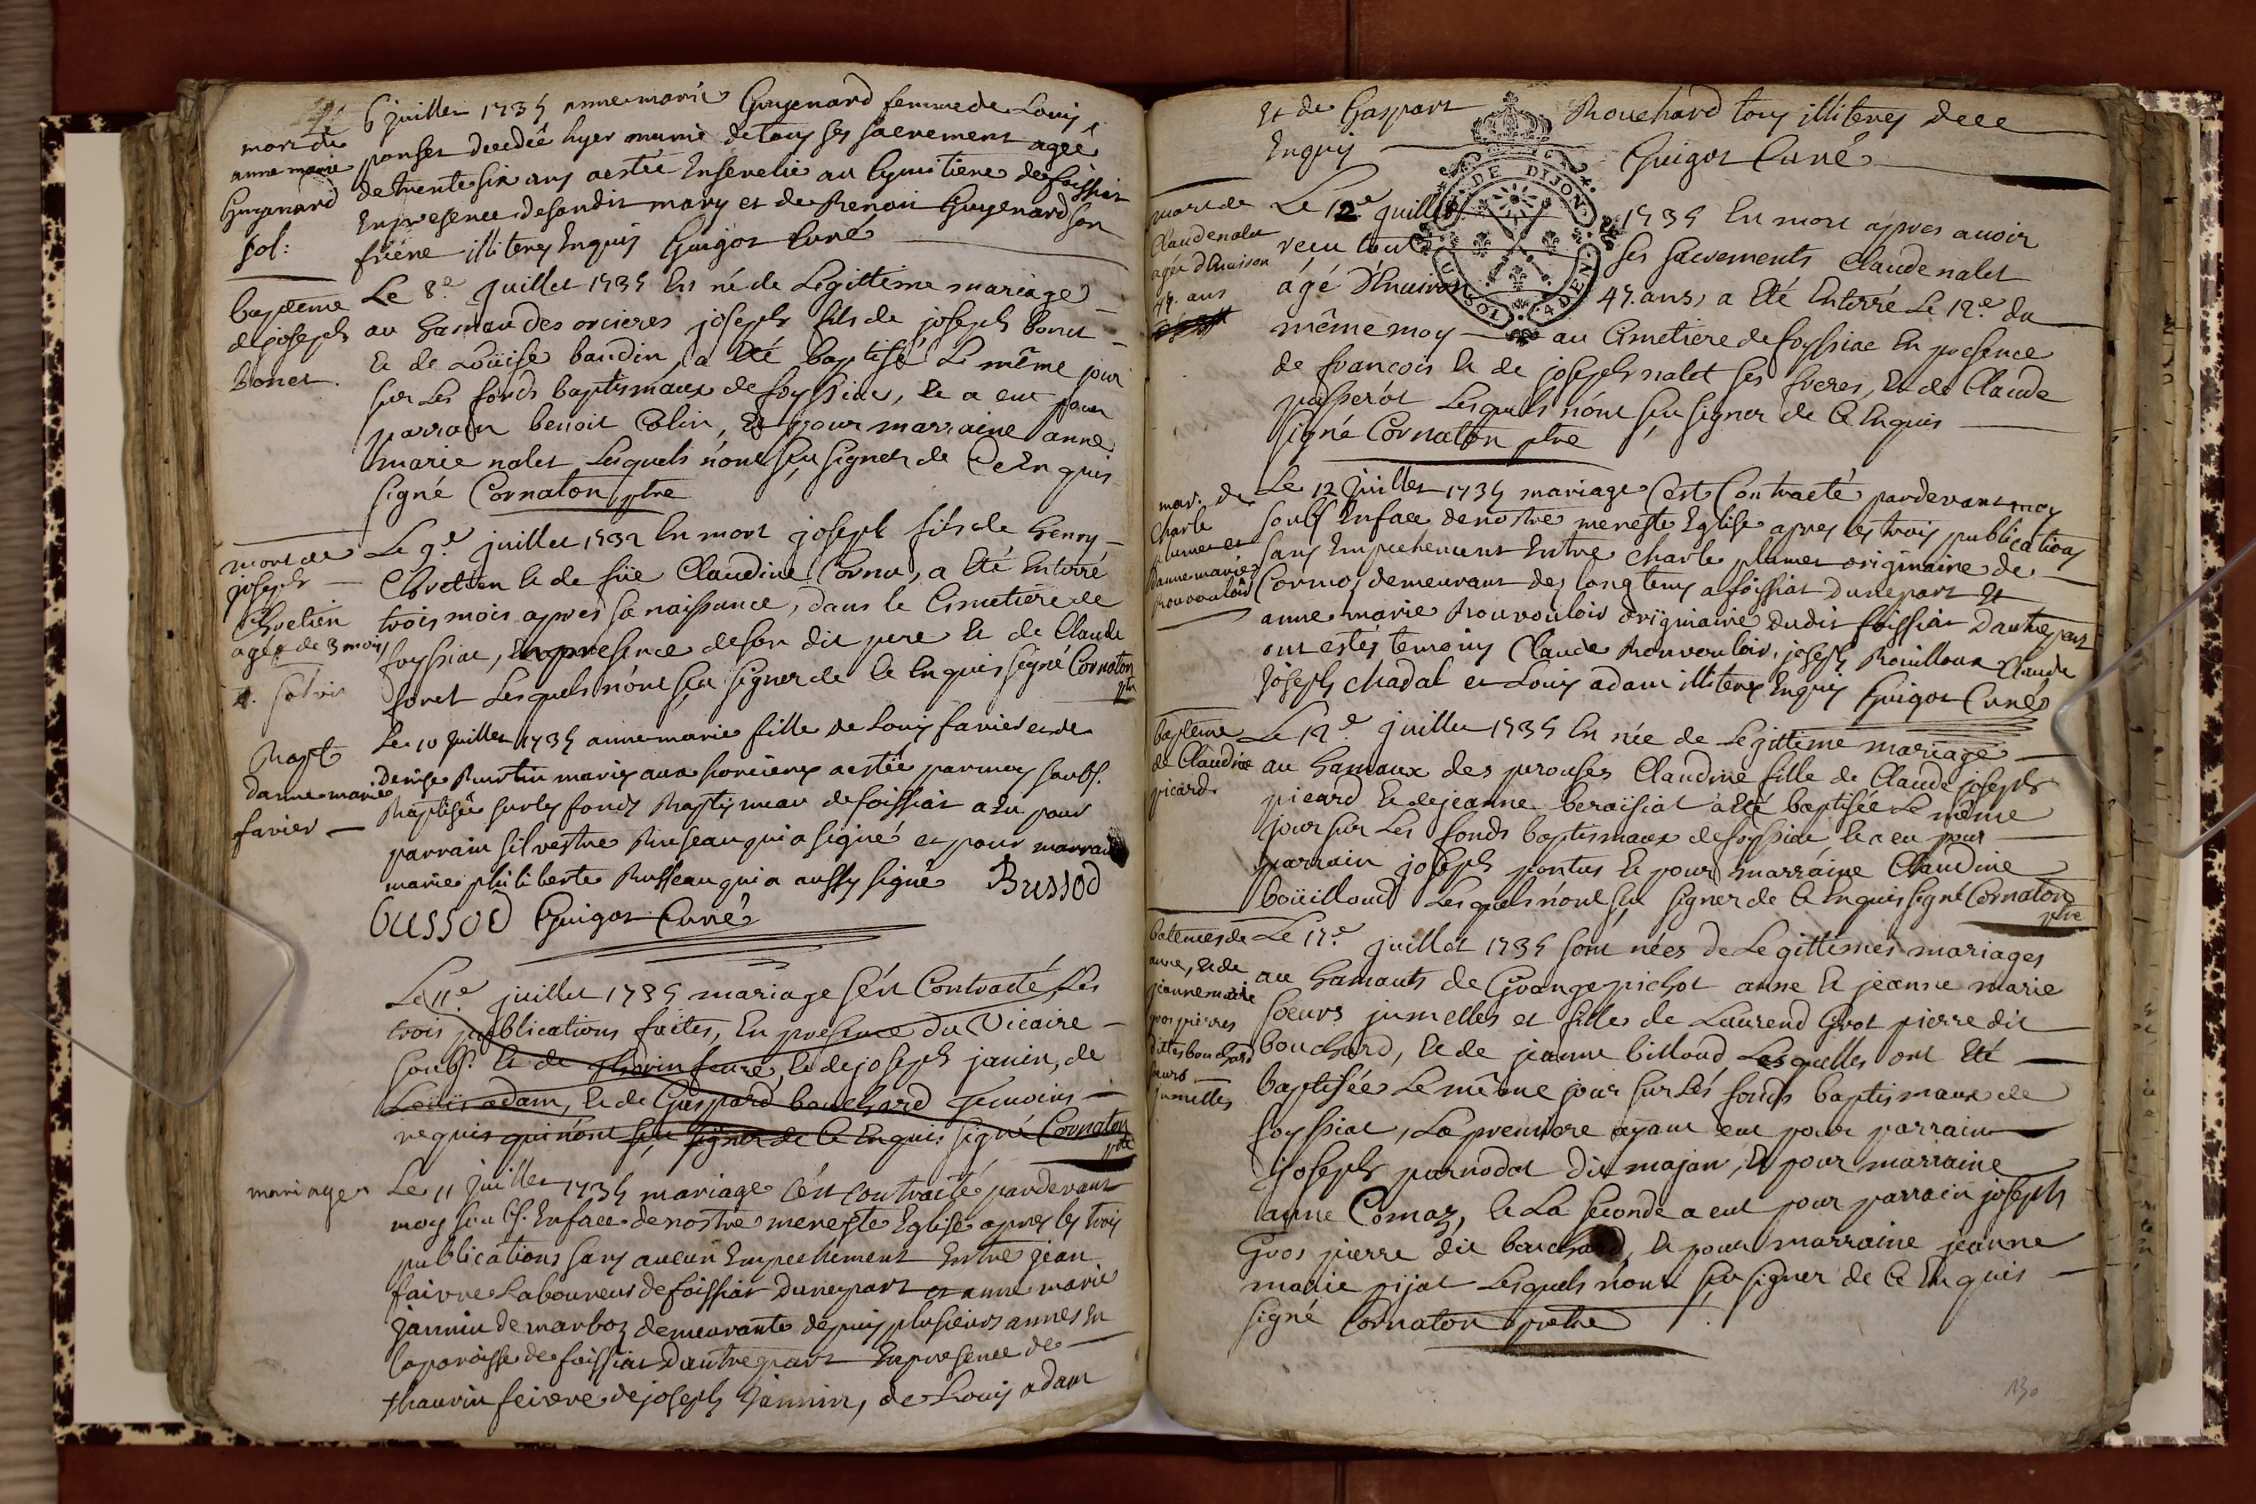 mort de
anne marie
Guyenard
sol:
Le 6 juillet 1735 anne marie Guyenard femme de Louis
ponset decedée hyer munie de tous ses sacrement agée
de trente six ans aestée Ensevelie au Cymitiere de foissiat
En presence desondit mary et de Benoit Guyenard son
frere illiterez Enquis Guigot Curé
bapteme
de joseph
bonet.
Le 8.e juillet 1735 Est né de Legittime mariage
au hamau des orcieres joseph fils de joseph bonet
Et de Loüise baudin, a Eté baptisé Le même jour
sur Les fonds baptismaux de foyssiat, Et a eut pour
parrain benoit Colin, Et pour marraine anne
marie nalet Lesquels n'ont sçu signer de Ce Enquis
signé Cornaton ptre
mort de
joseph
Chretien
agé de 3 mois
Le 9.e juillet 1735 Est mort joseph fils de henry
Chretien Et de füe Claudine Cornu, a Eté Enterré
trois mois apres sa naissance, dans le Cimetiere de
foyssiat, En presence de son dit pere Et de Claude
foret Lesquels n'ont sçu signer de Ce Enquis signé Cornaton
ptre
Bapt
d'anne marie
favier
Le 10 Juillet 1735 anne marie fille de Louis favier et de
denise Burtin mariez aux sorcieres aestée par moy soubs.
Baptisée sur les fonds Baptismau de foissiat a Eu pour
parrain silvestre Busseau qui a signé et pour marraine
marie philiberte Busseau qui a aussy signé Bussod
bussod Guigot Curé
Le 11.e juillet 1735 mariage s'est Contracté, Les
trois publications faites, En presence du Vicaire
soubs. Et de thorin feure, Et de joseph janin, de
Loüis adam, Et de Gaspard bouchard temoins
requis qui n'ont sçu signer de Ce Enquis signé Cornaton
ptre
mariage
Le 11 Juillet 1735 mariage s'est contracté pardevant
moy soubs. En face de nostre mere ste Eglise apres les trois
publications sans aucun Empechement Entre jean
faivre Laboureur de foissiat d'une part et anne marie
Jannin de marboz demeurante depuis plusieurs annes En
la paroisse de foissiat d'autre part En presence de
thaurin feivre de joseph Jannin, de Louis adam
Et de Gaspart Bouchard tous illiterez de ce
Enquis Guigot Curé
DE DIJON
mort de
Claude nalet
agée d'Environ
45. ans
Le 12.e juillet 1735 Est mort apres avoir
recu tout ses sacrements Claude nalet
agé d'Environ 45. ans, a Eté Enterré Le 12.e du
même moy au Cimetiere de foyssiat En presence
de françois Et de joseph nalet ses freres, Et de Claude
passerot Lesquels n'ont sçu signer de Ce Enquis
signé Cornaton ptre
mar. de
Charle
plumet et
d'anne marie
Bouvouloir
Le 12 Juillet 1735 mariage s'est Contracté pardevant moy
soubs. En face de nostre mere ste Eglise apres les trois publications
sans Empechement Entre Charle plumet originaire de
Cormoz demeurant des longtems a foissiat d'une part Et
anne marie Bouvouloir originaire dudit foissiat d'autre part
ont estés temoins Claude Bouvouloir, joseph Bouilloux Claude
Joseph Chadal et Louis adam illiterez Enquis Guigot Curé
bapteme
de Claudine
picard
Le 12.e juillet 1735 Est née de Legittime mariage
au hamaux des perouses Claudine fille de Claude joseph
picard Et de jeanne beraïsiat a Eté baptisée Le même
jour sur Les fonds baptismaux de foyssiat, Et a eu pour
parrain joseph pontus Et pour marraine Claudine
boüilloud Lesquels n'ont sçu signer de Ce Enquis signé Cornaton
ptre
batemes de
anne, Et de
jeanne marie
gros pierres
dittes bouchard
seurs
jumelles
Le 17.e juillet 1735 sont nées de Legittimes mariages
au hamauts de Grange pichot anne Et jeanne marie
soeurs jumelles et filles de Laurend Grot pierre dit
bouchard, Et de jeanne billoud, Lesquelles ont Eté
baptisées Le même jour sur Les fonds baptismaux de
foyssiat, La premiere ayant eut pour parrain
joseph parnodat dit majan, Et pour marraine
anne Comaz, Et La seconde a eut pour parrain joseph
Gros pierre dit bouchard, Et pour marraine jeanne
marie pijat Lesquels n'ont sçu signer de Ce Enquis
signé Cornaton pretre
130